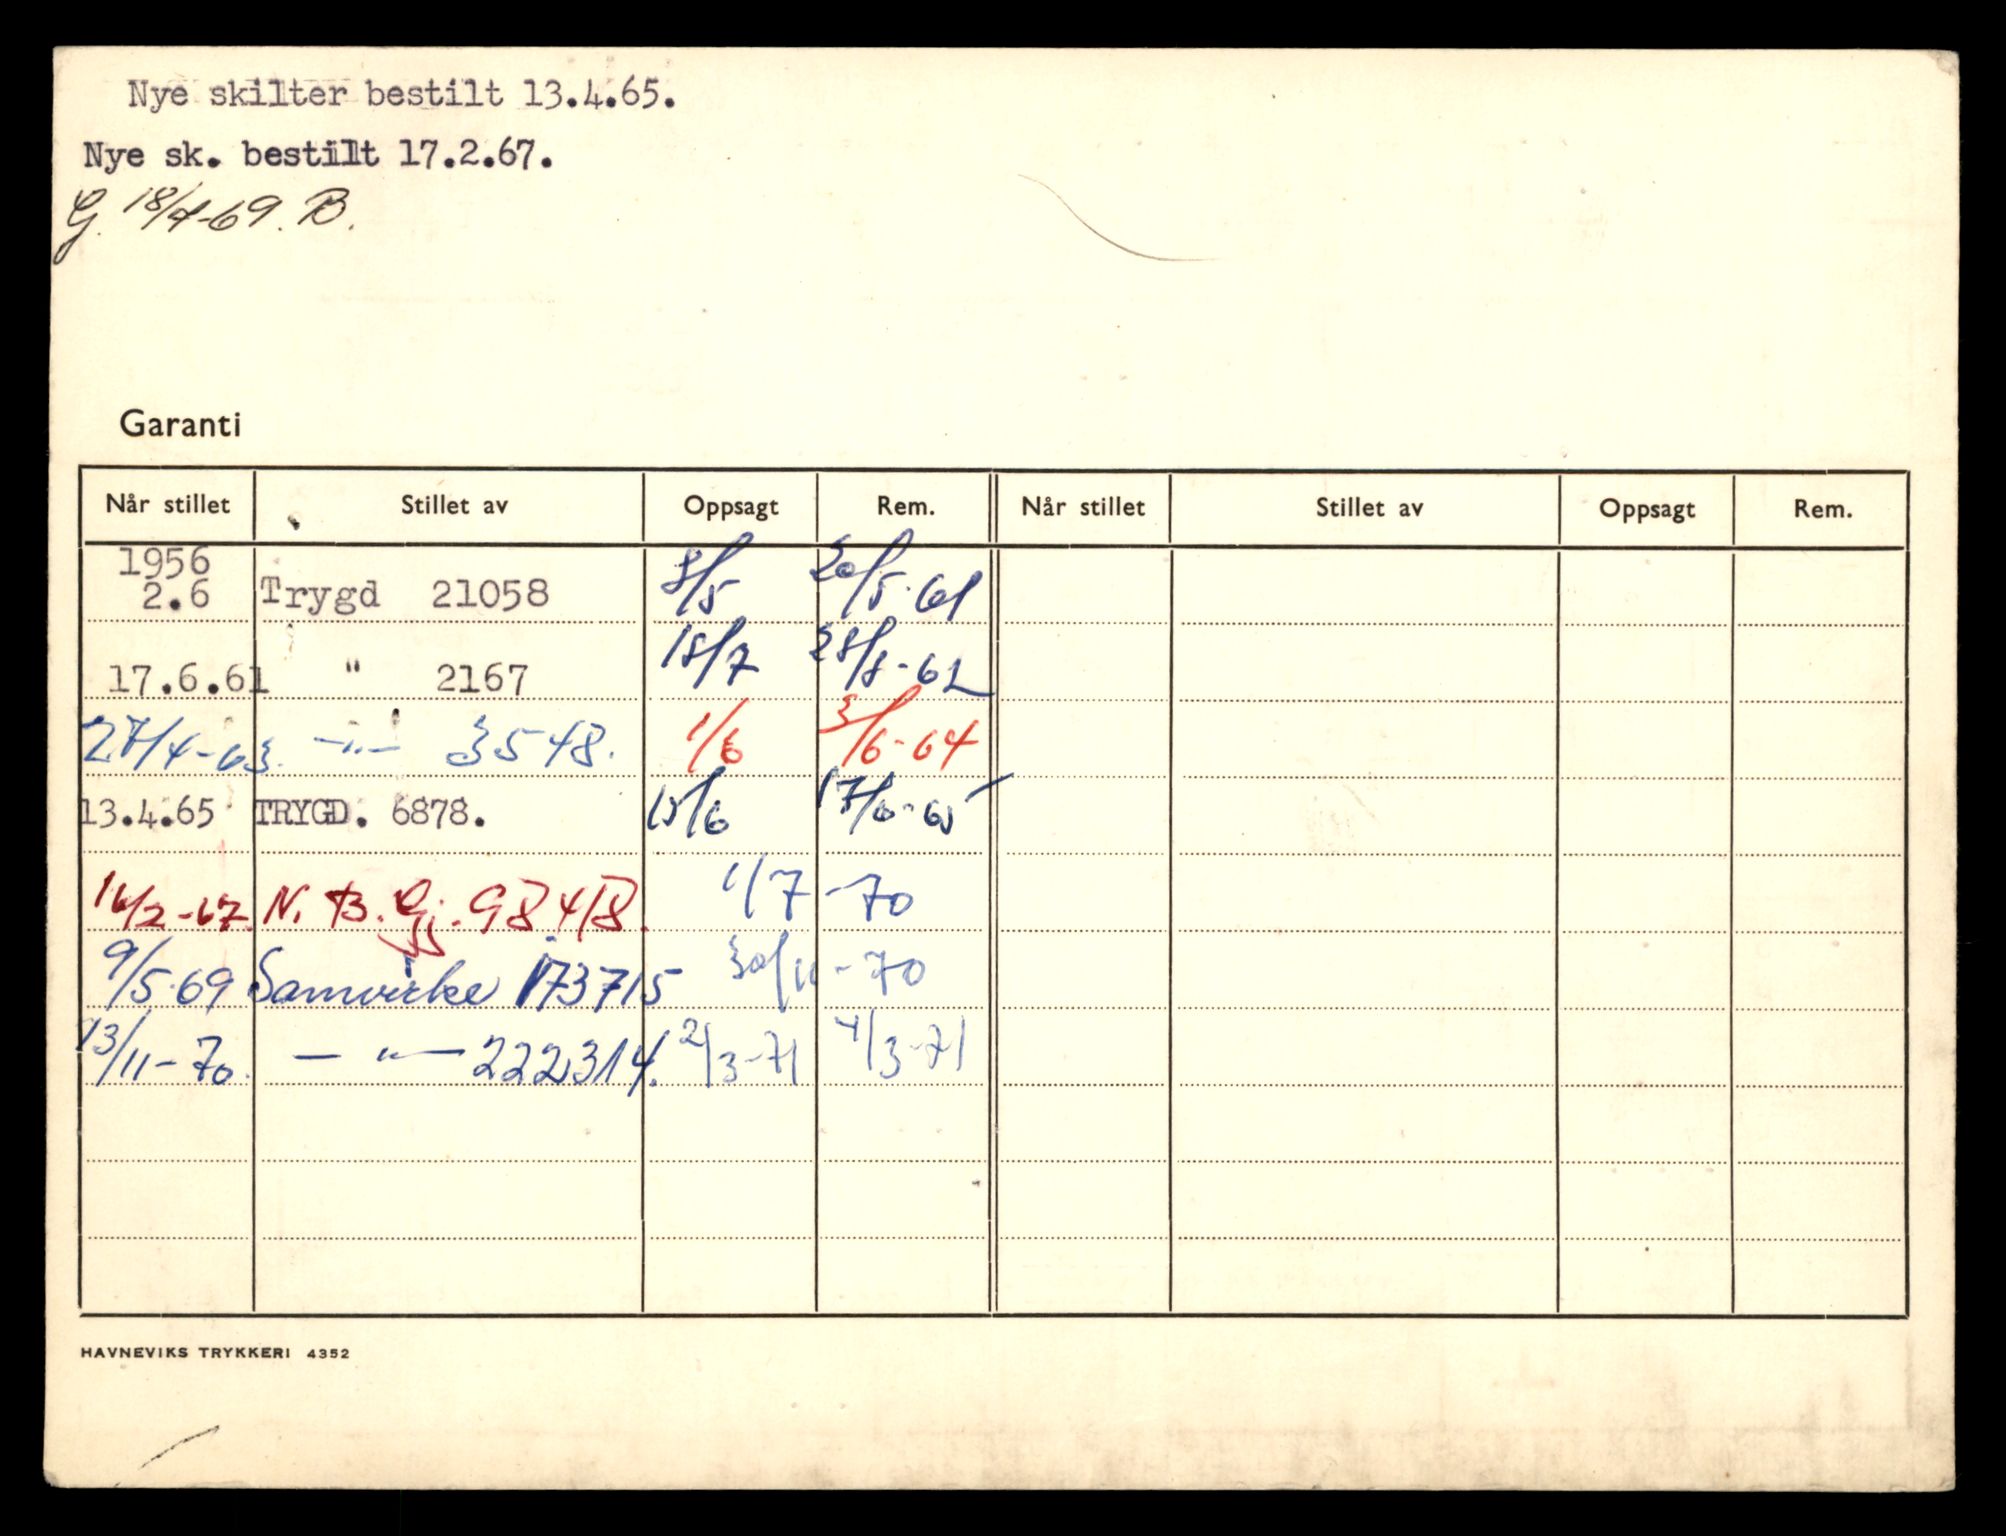 Nye skilter bestilt 13.4.65.
Nye sk. bestilt 17.2.67.
G. 18/4-69. B.
Garanti
Når stillet Stillet av Oppsagt Rem. Når stillet Stillet av Oppsagt Rem.
1956
2.6 Trygd 21058 8/5 20/5-61
17.6.61 " 2167 18/7 28/8-62
27/4-63. -"- 3548. 1/6 3/6-64
13.4.65 TRYGD. 6878. 15/6 17/6-65
16/2-67. N. B. Gj. 98418. 1/7-70
9/5-69 Samvirke 173715 30/11-70
13/11-70. -"- 222314. 2/3-71 4/3-71
HAVNEVIKS TRYKKERI 4352